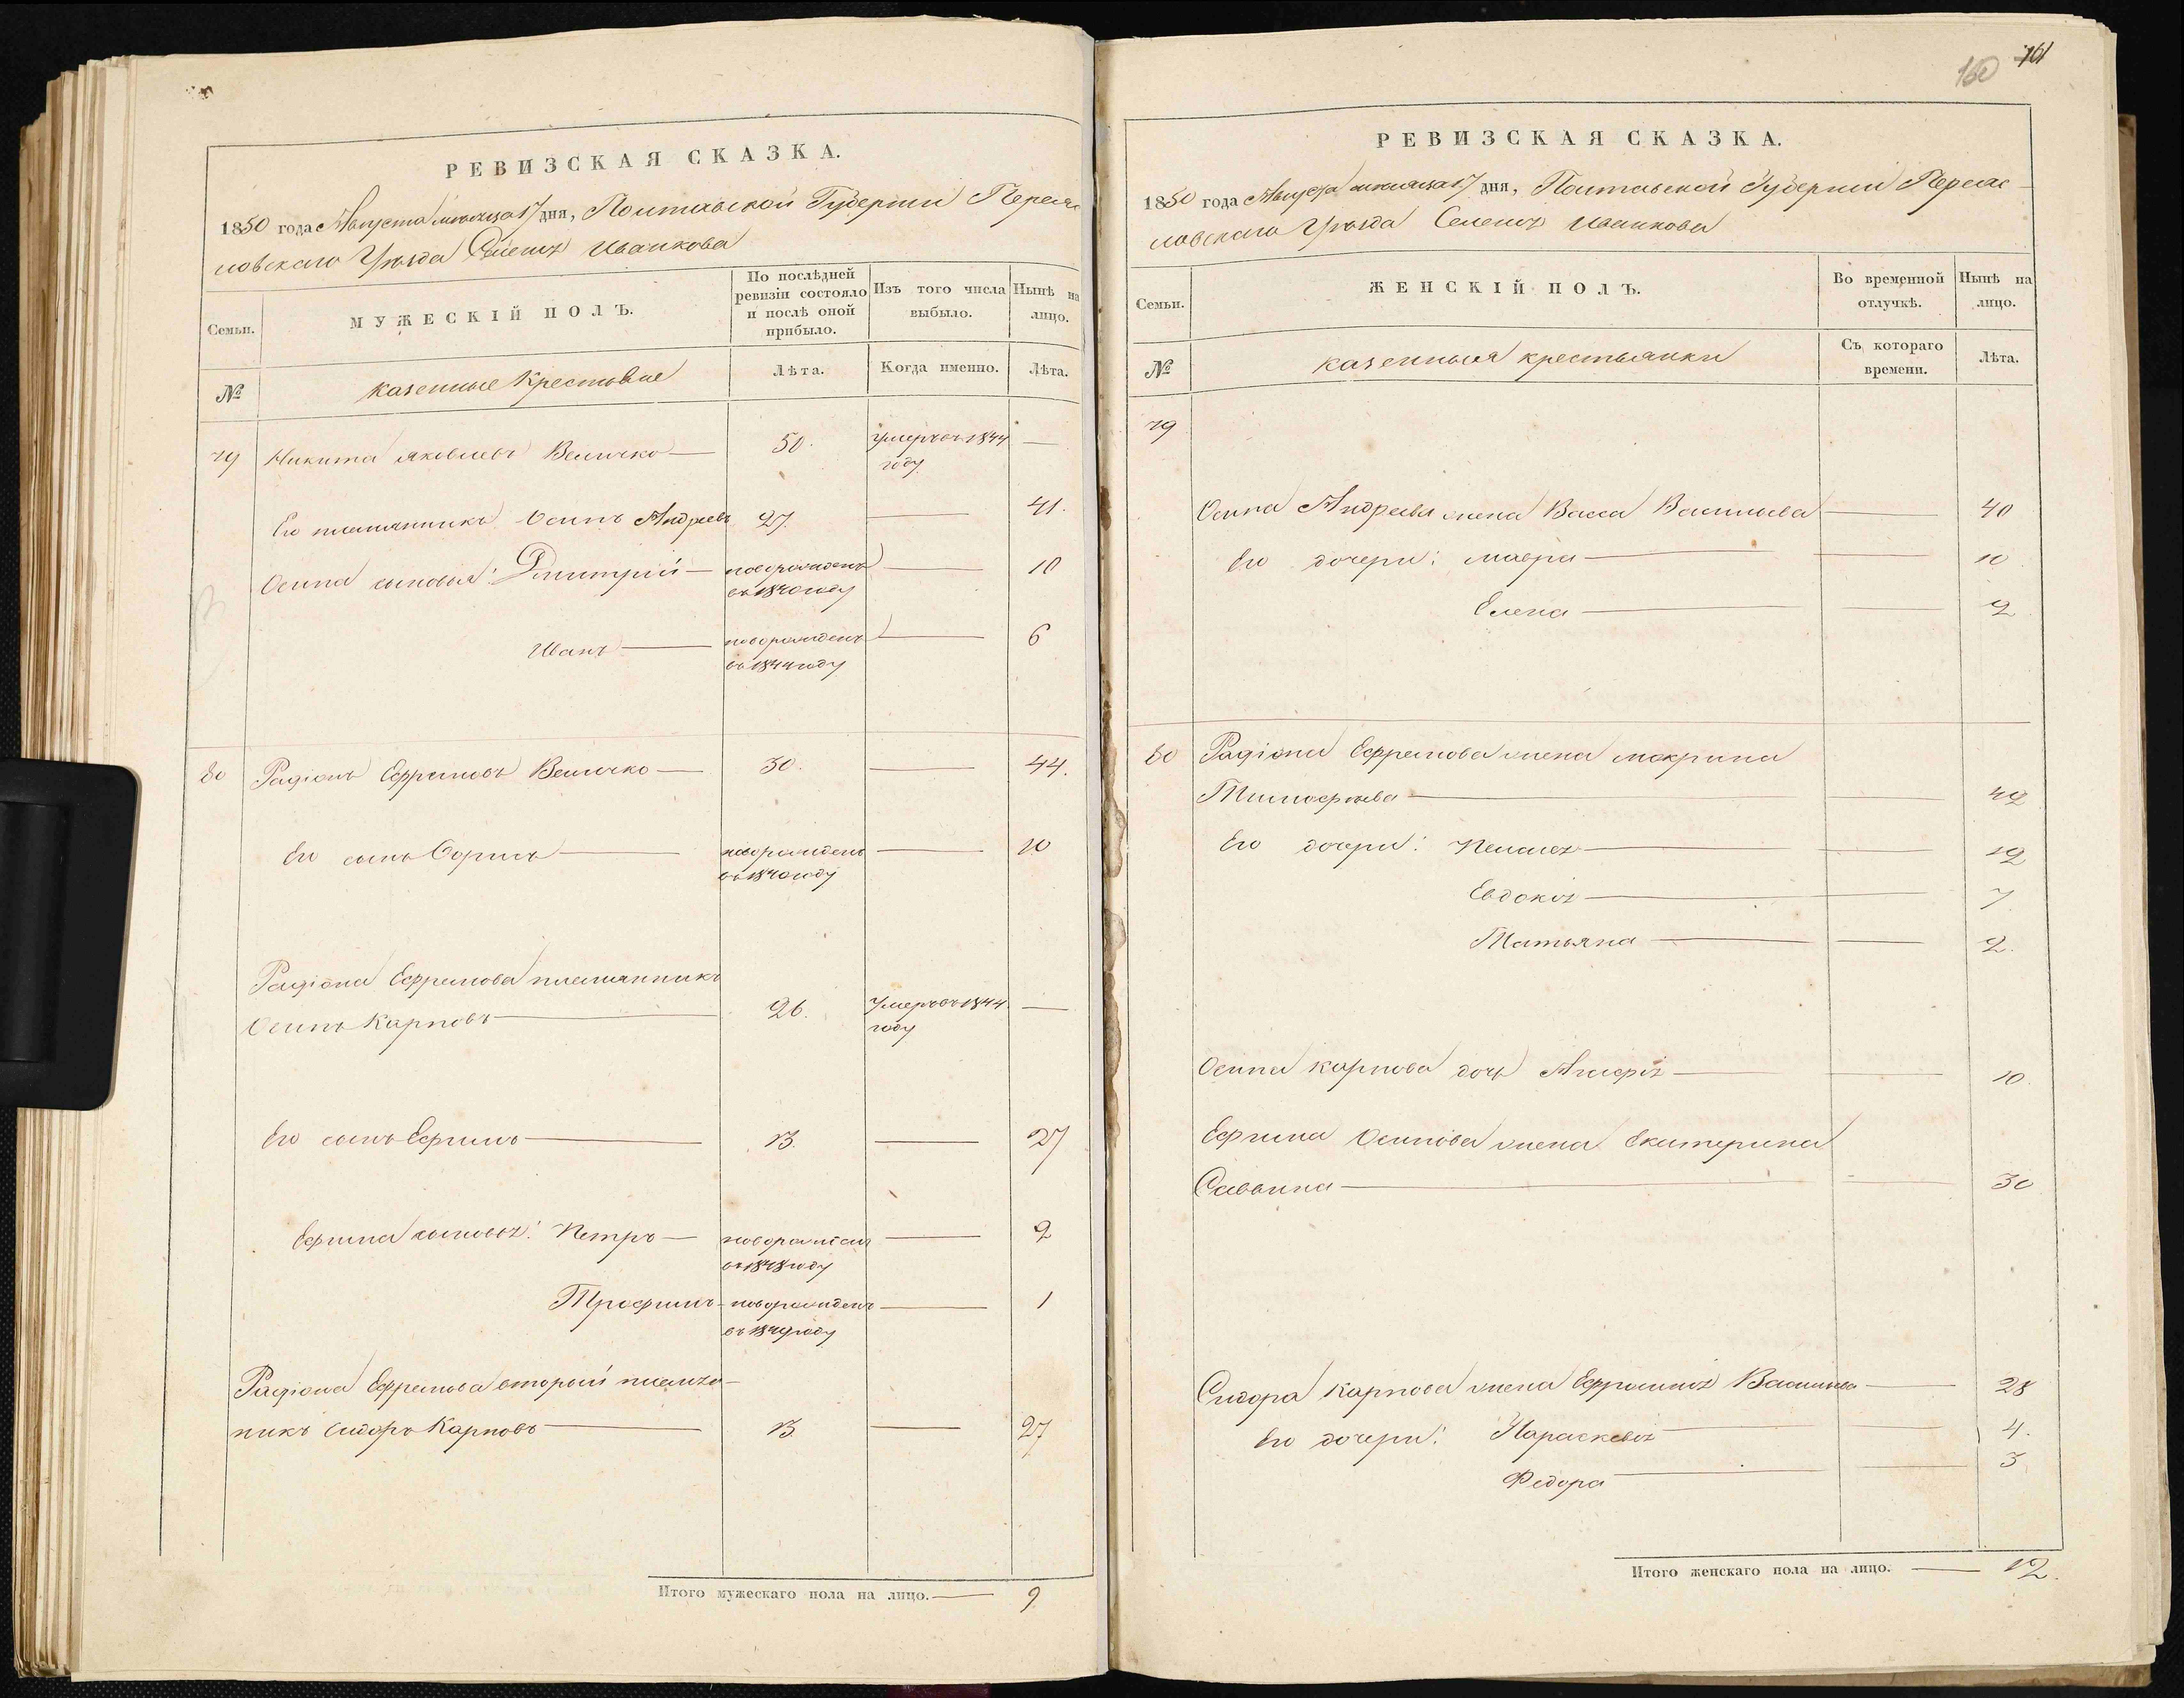 РЕВИЗСКАЯ СКАЗКА.
1850 года Августа мѣсяца 17 дня, Полтавской Губерніи Переяс
ловскаго Уѣзда Селенія Иванкова
Семьи.
МУЖЕСКІЙ ПОЛЪ.
По послѣдней ревизіи состояло и послѣ оной прибыло.
Изъ того числа выбыло.
Нынѣ на лицо.
№
казенные Крестьяне
Лѣта.
Когда именно.
Лѣта.
79 Никита Яковлевъ Величко — 50. Умеръ въ 1844 —
году
Его племянникъ Осипъ Андреевъ 27. — 41.
Осипа сыновья: Дмитрій — новорожденъ — 10
въ 1840 году
Иванъ — новорожденъ — 6
въ 1844 году
80 Радіонъ Ефремовъ Величко — 30. — 44.
Его сынъ Борисъ — новорожденъ — 10
въ 1840 году
Радіона Ефремова племянникъ
Осипъ Карповъ — 26. Умеръ въ 1844 —
году
Его сынъ Ефимъ — 13. — 27
Ефима сыновья: Петръ — новорожден — 2
въ 1848 году
Трофимъ — новорожденъ — 1
въ 1849 году
Радіона Ефремова вторый племян-
никъ Сидоръ Карповъ — 13 — 27
Итого мужескаго пола на лицо. — 9
160 161
РЕВИЗСКАЯ СКАЗКА.
1850 года Августа мѣсяца 17 дня, Полтавской Губерніи Переяс
ловскаго Уѣзда Селенія Иванкова
Семьи.
ЖЕНСКІЙ ПОЛЪ.
Во временной отлучкѣ.
Нынѣ на лицо.
№
казенныя крестьянки
Съ котораго времени.
Лѣта.
79
Осипа Андреева жена Васса Васильева — 40
Его дочери: Мавра — — 10
Елена — — 2
80 Радіона Ефремова жена Макрина
Тимофѣева — — 42
Его дочери: Пелагія — — 12
Евдокія — 7
Татьяна — — 2.
Осипа Карпова дочь Агафія — — 10
Ефима Осипова жена Екатерина
Саввина — — 30
Сидора Карпова жена Ефросинія Васильева — 28
Его дочери: Параскевія — — 4.
Федора — — 3
Итого женскаго пола на лицо. — 12.